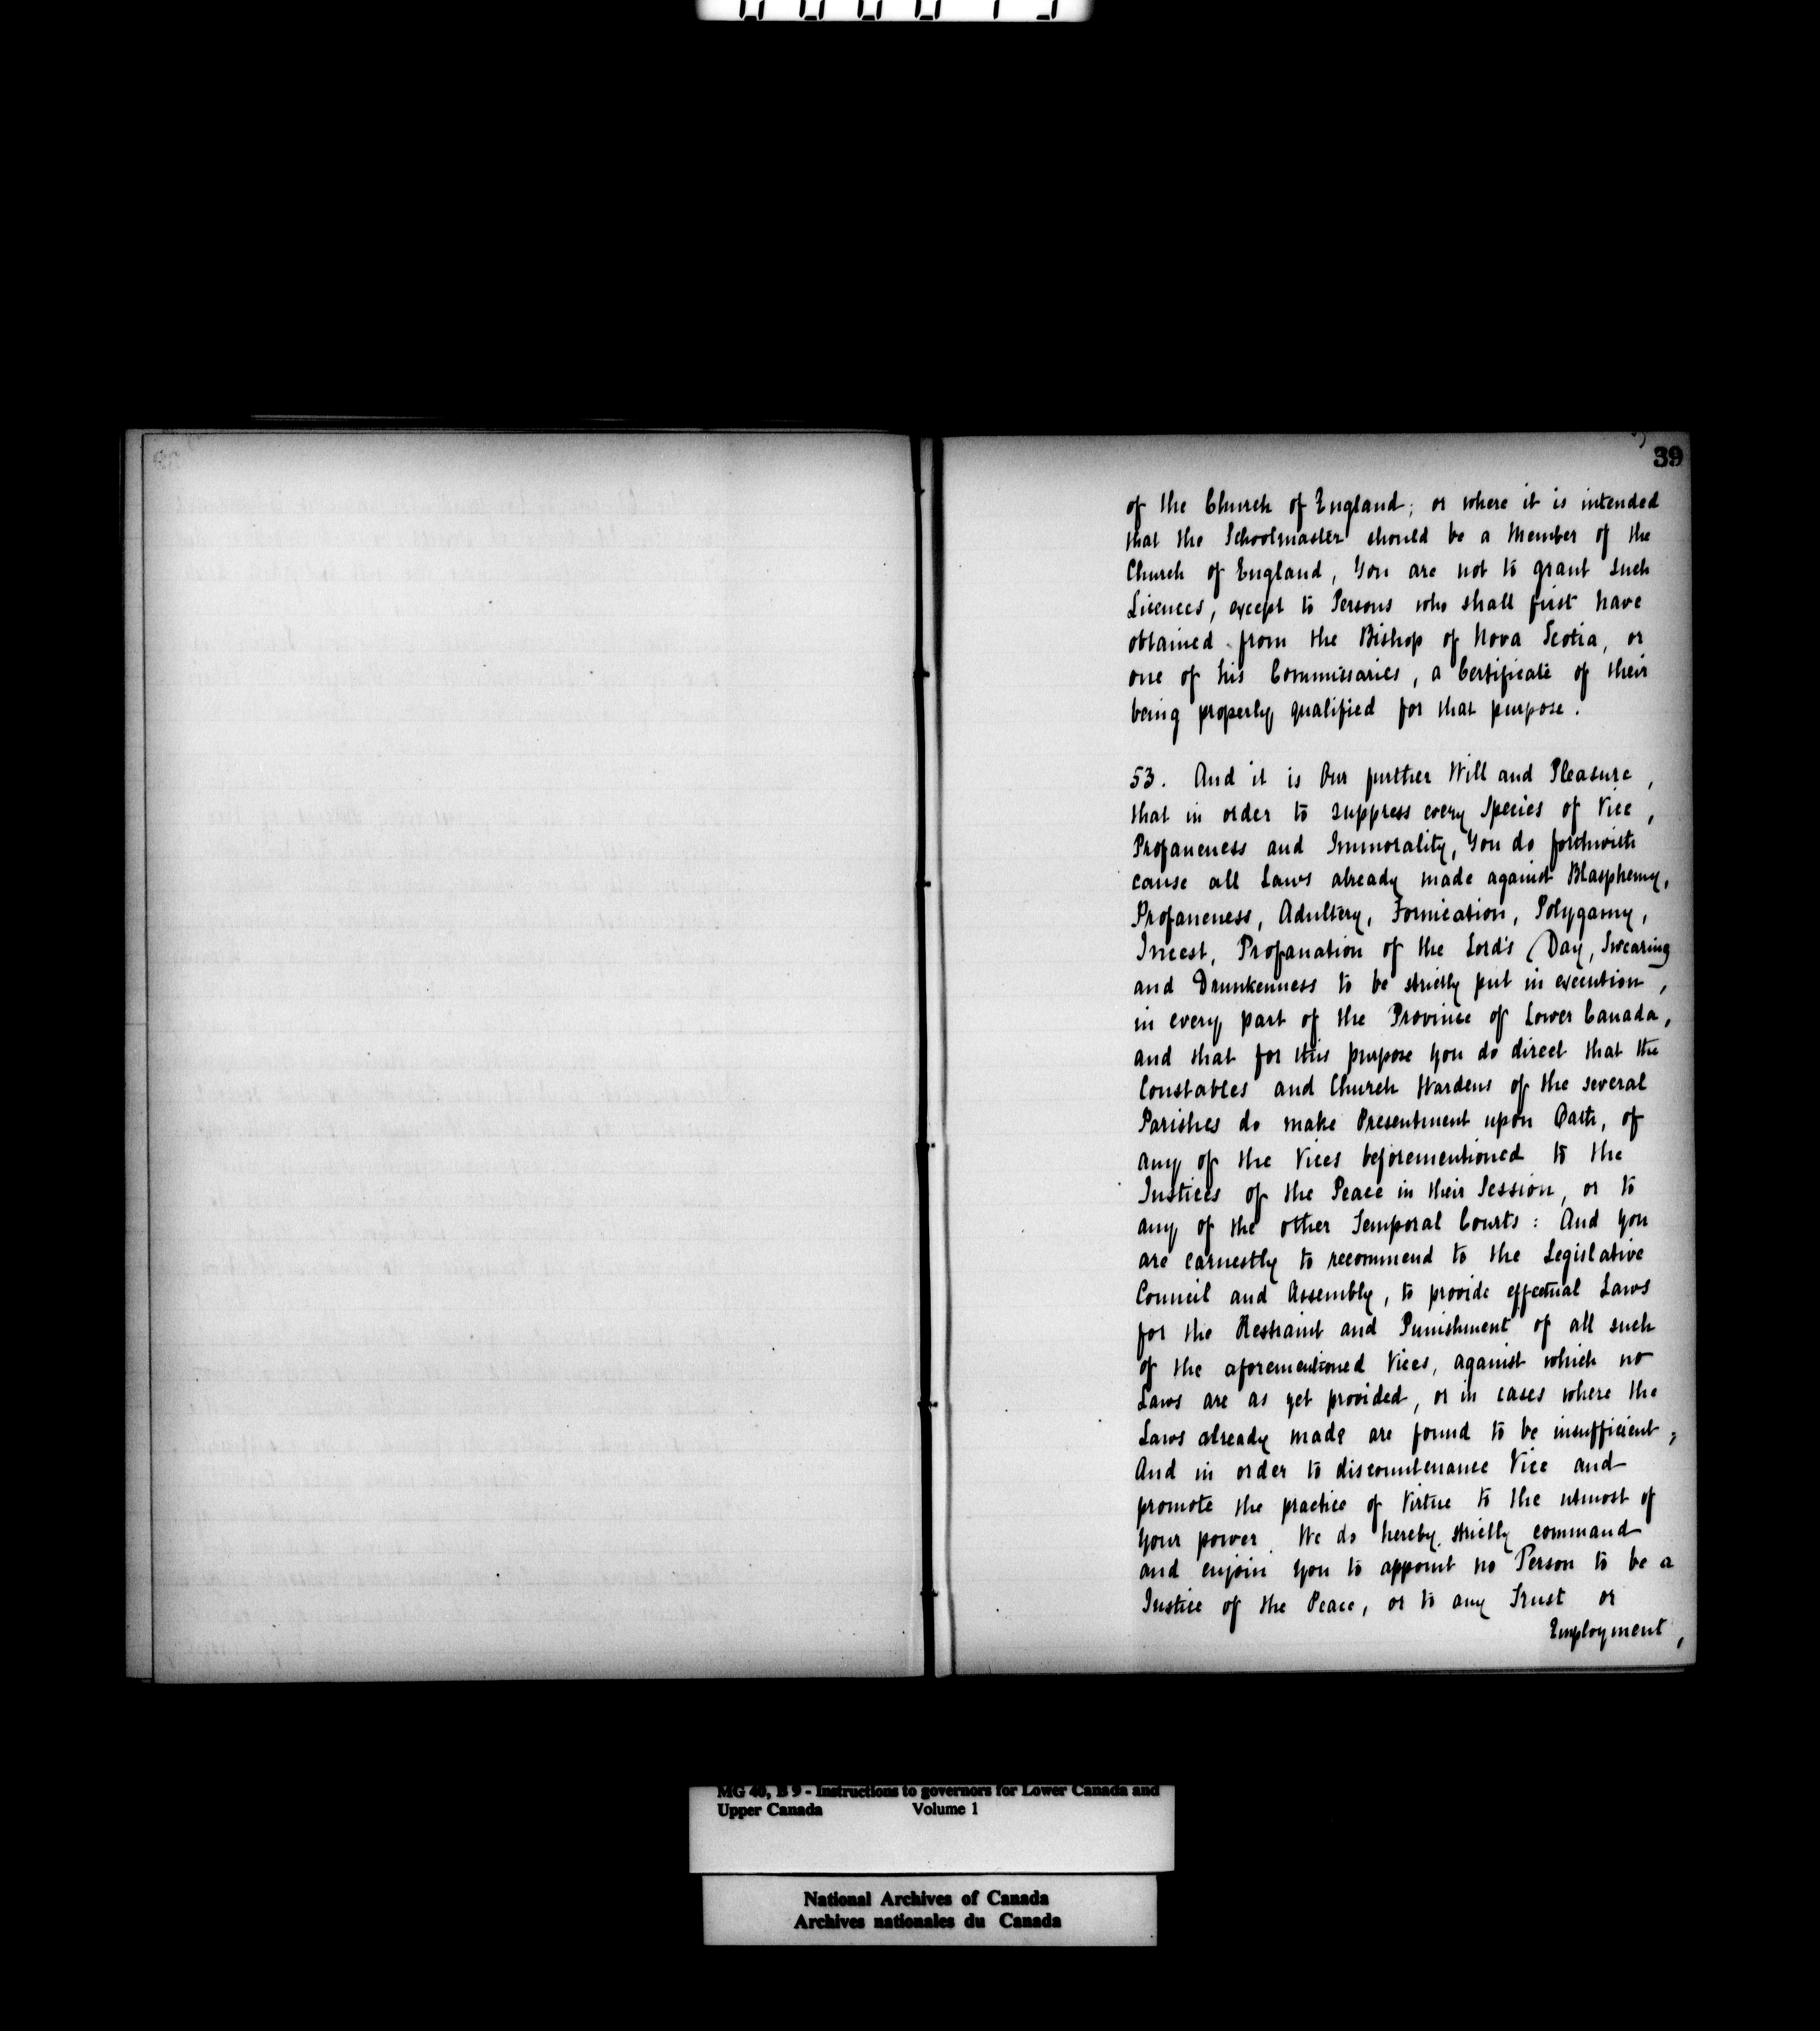 39
of the Church of England; or where it is intended
that the Schoolmaster should be a Member of the
Church of England, You are not to grant such
Licences, except to Persons who shall first have
obtained from the Bishop of Nova Scotia, or
one of his Commissaries, a Certificate of their
being properly qualified for that purpose.
53. And it is Our further Will and Pleasure,
that in order to suppress every Species of Vice,
Profaneness and Immorality, You do forthwith
cause all Laws already made against Blasphemy,
Profaneness, Adultery, Fornication, Polygamy,
Incest, Profanation of the Lord's Day, Swearing
and Drunkenness to be strictly put in execution,
in every part of the Province of Lower Canada,
and that for this purpose you do direct that the
Constables and Church Wardens of the several
Parishes do make Presentment upon Oath, of
any of the Vices beforementioned to the
Justices of the Peace in their Session, or to
any of the other Temporal Courts: And you
are earnestly to recommend to the Legislative
Council and Assembly, to provide effectual Laws
for the Restraint and Punishment of all such
of the aforementioned Vices, against which no
Laws are as yet provided, or in cases where the
Laws already made are found to be insufficient;
And in order to discountenance Vice and
promote the practice of Virtue to the utmost of
your power. We do hereby strictly command
and enjoin you to appoint no Person to be a
Justice of the Peace, or to any Trust or
Employment,
MG 40, B 9 - Instructions to governors for Lower Canada and
Upper Canada Volume 1
National Archives of Canada
Archives nationales du Canada